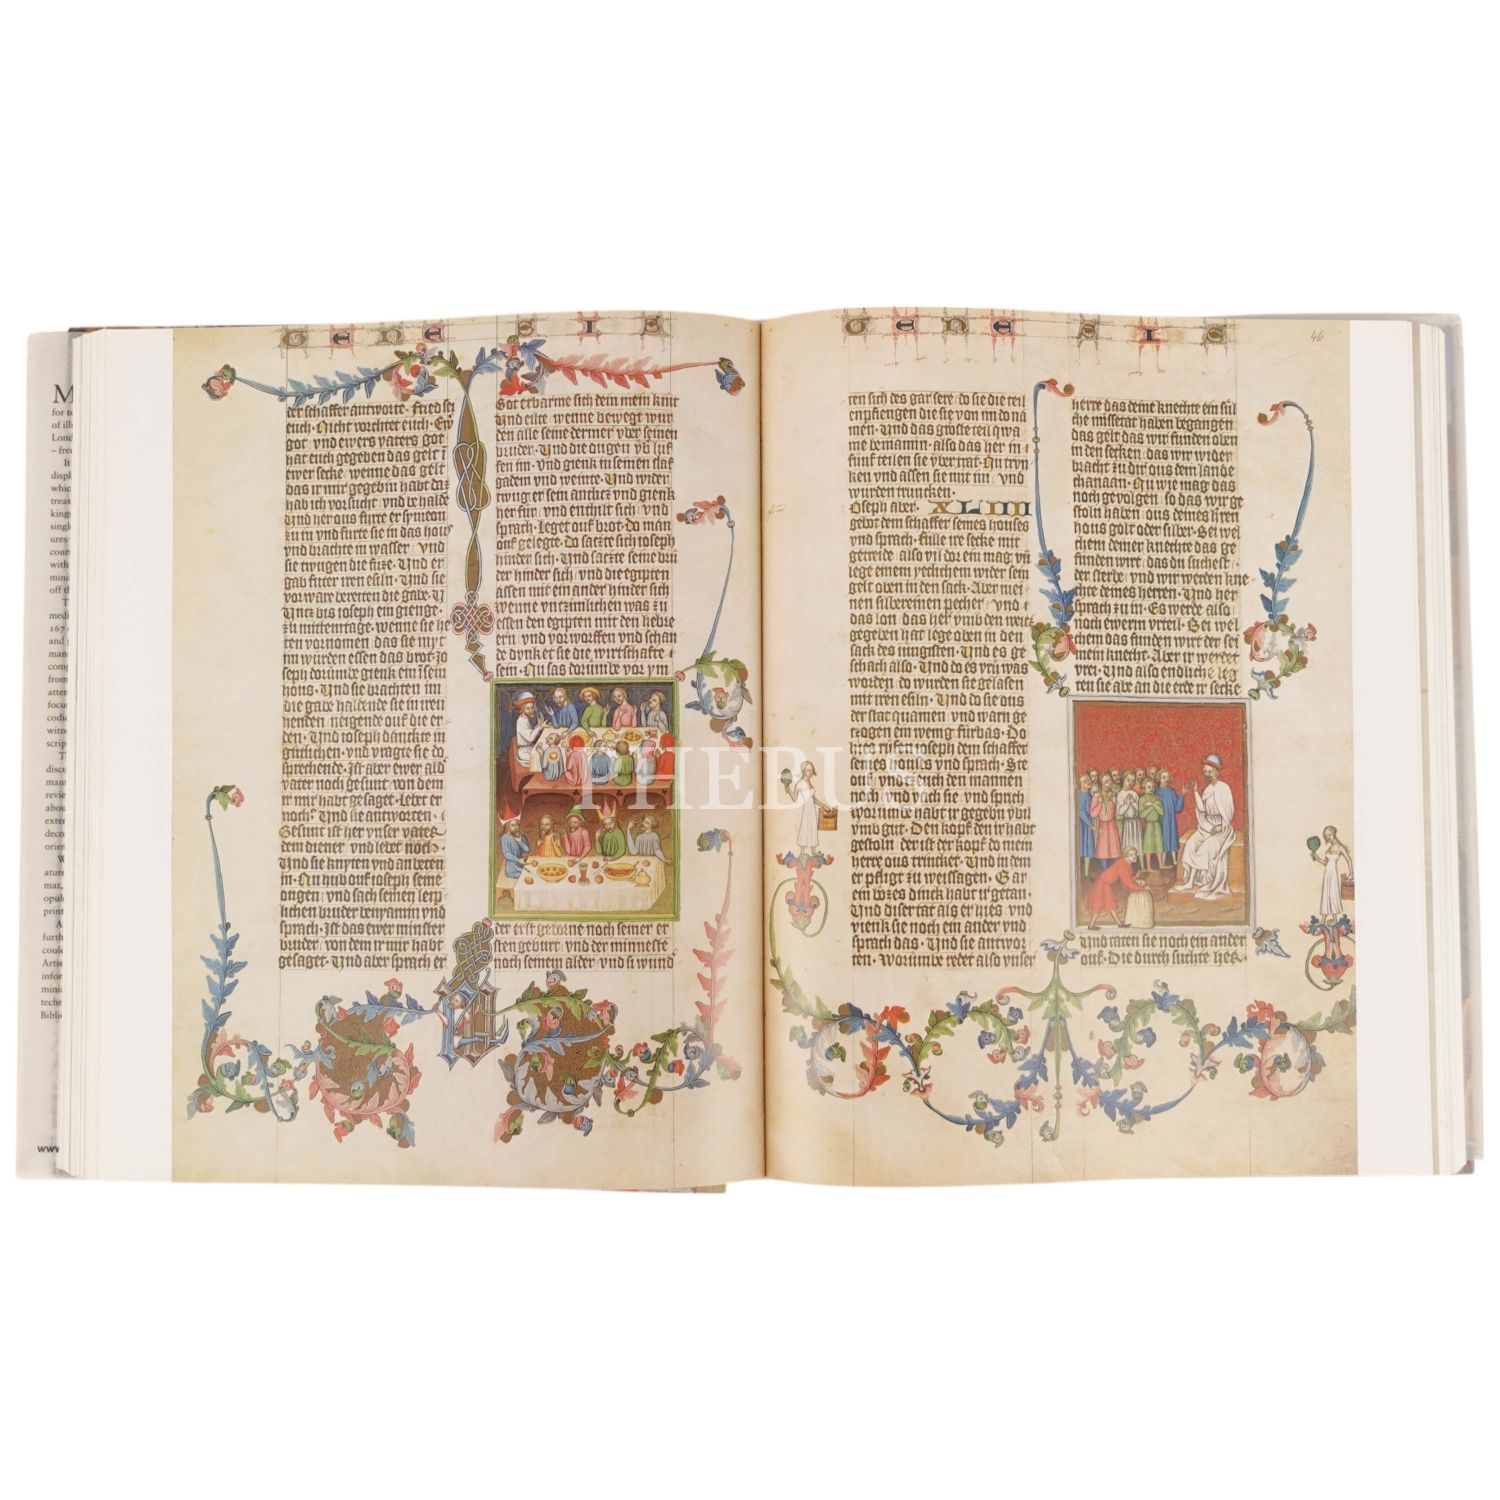 GENE SIS
der schaffer antworte · Fried sei
euch · Nicht vorchtet euch · Ewr
got vnd ewers vaters got
hat euch gegeben das gelt in
ewer secke / wenne das gelt
das ir mir gegebin habt daz
hab ich vorsucht vnd behalde
Vnd her ous furte er symeon
zu in vnd furte sie in das hous
vnd brachte in wasser / vnd
sie twigen die fuze · Vnd er
gab futer iren esiln · Vnd sie
vorware bereiten die gabe · V
Vntz bis ioseph ein gienge ·
zu mittemtage · wenne sie he
ten vornomen das sie myt
im wurden essen das brot · Jo
soph dorumbe gienk ein in sein
hous · Vnd sie brachten im
die gabe haldende sie in iren
henden neigende ouf die er
den · Vnd ioseph danckte in
gutlichen · vnd vragte sie do
sprechende · Ist aber ewer ald
vater noch gesunt von dem
ir mir habt gesaget · Lebt er
noch · Vnd sie antworten ·
Gesunt ist her vnser vater
dem diener vnd lebet noch ·
Vnd sie knyten vnd anbeten
in · Nu hub ouf ioseph seine
ougen · vnd sach seinen leip
lichen bruder benyamin vnd
sprach · Ist das ewer minster
bruder von dem ir mir habt
gesaget · Vnd aber sprach er
Got erbarme sich dein mein kint
Vnd eilte wenne bewegt wur
den alle seine dermer vber seinen
bruder · Vnd die ougen vb luf
fen im · vnd gienk in seinen slaf
gadem vnd weinte · Vnd wider
twug er sein antlitz vnd gienk
her fur / vnd enthilt sich vnd
sprach · Leget ouf brot · do man
ouf gelegte · do satzte sich ioseph
hinder sich · Vnd satzte seine bru
der hinder sich / vnd die egipten
assen mit ein ander hinder sich
wenne vntzimlichen was zu
essen den egipten mit den hebre
ern vnd vorworffen vnd schan
de dunket sie die wirtschafte
sein · Nu sas dorumbe vor ym
der erst geborne noch seiner er
sten geburt · vnd der minneste
noch seinem alder / vnd si wund
GENE SIS
46
ren sich des gar sere · do sie die teil
enpfiengen die sie von im do na
men · Vnd das groste teil qwa
me beniamin · also das her in
funf teilen sie vber trat · Nu trun
ken vnd assen sie mit im / vnd
wurden truncken ·
Joseph aber · XLIIII
gebot dem schaffer seines houses
vnd sprach · Fulle ire secke mit
getreide · also vil dor ein mag vnd
lege einem yeclichem wider sein
gelt oben in den sack · Aber mei
nen silbereinen pecher / vnd
das lon das her vmb den weitz
gegeben hat lege oben in den
sack des iungisten · Vnd es ge
schach also · Vnd do es vru was
worden · do wurden sie gelasen
mit iren esiln · Vnd do sie ous
der stat quamen / vnd warn ge
zogen ein wenig furbas · Do
hies rufen ioseph dem schaffer
seines houses vnd sprach · Ste
ouf / vnd zeuch den mannen
noch / vnd vach sie / vnd sprich
worumbe habt ir gegebn vbil
vmb gut · Den kopf den ir habt
gestoln / der ist der kopf do mein
herre ous truncket · Vnd in dem
er pfligt zu weissagen · Gar
ein bozes dinck habt ir getan ·
Vnd diser tat als er hies / vnd
vienk sie noch ein ander vnd
sprach das · Vnd sie antwor
ten · Worumbe redet also vnser
herre das deine knechte ein sul
che missetat haben begangen
das gelt das wir funden oben
in den secken / das wir wider
bracht zu dir ous dem lande
chanaan · Nu wie mag das
noch gevolgen / so das wir ge
stoln haben ous deines herren
hous golt oder silber · Bei wel
chem deiner knechte das ge
funden wirt / das du suchest
der sterbe / vnd wir werden kne
chte deines herren · Vnd her
sprach zu in · Es werde also
noch ewerm vrteil · Bei wel
chem das funden wirt der sei
mein knecht · Aber ir werdet
vrei · Vnd also endliche leg
ten sie abe an die erde ir secke
Vnd taten sie noch ein ander
ouf · Die durch suchte her
PHEBUS